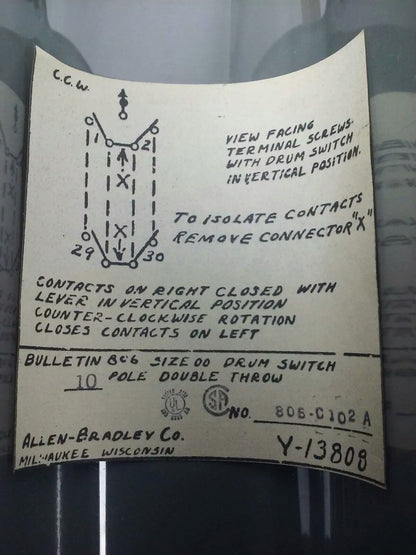 C.C.W.
1 2
X
X
29 30
VIEW FACING
TERMINAL SCREWS
WITH DRUM SWITCH
IN VERTICAL POSITION.
TO ISOLATE CONTACTS
REMOVE CONNECTOR "X"
CONTACTS ON RIGHT CLOSED WITH
LEVER IN VERTICAL POSITION
COUNTER-CLOCKWISE ROTATION
CLOSES CONTACTS ON LEFT
BULLETIN 806 SIZE 00 DRUM SWITCH
10 POLE DOUBLE THROW
UL SA NO. 806-C102 A
ALLEN-BRADLEY CO.
MILWAUKEE WISCONSIN
Y-13808